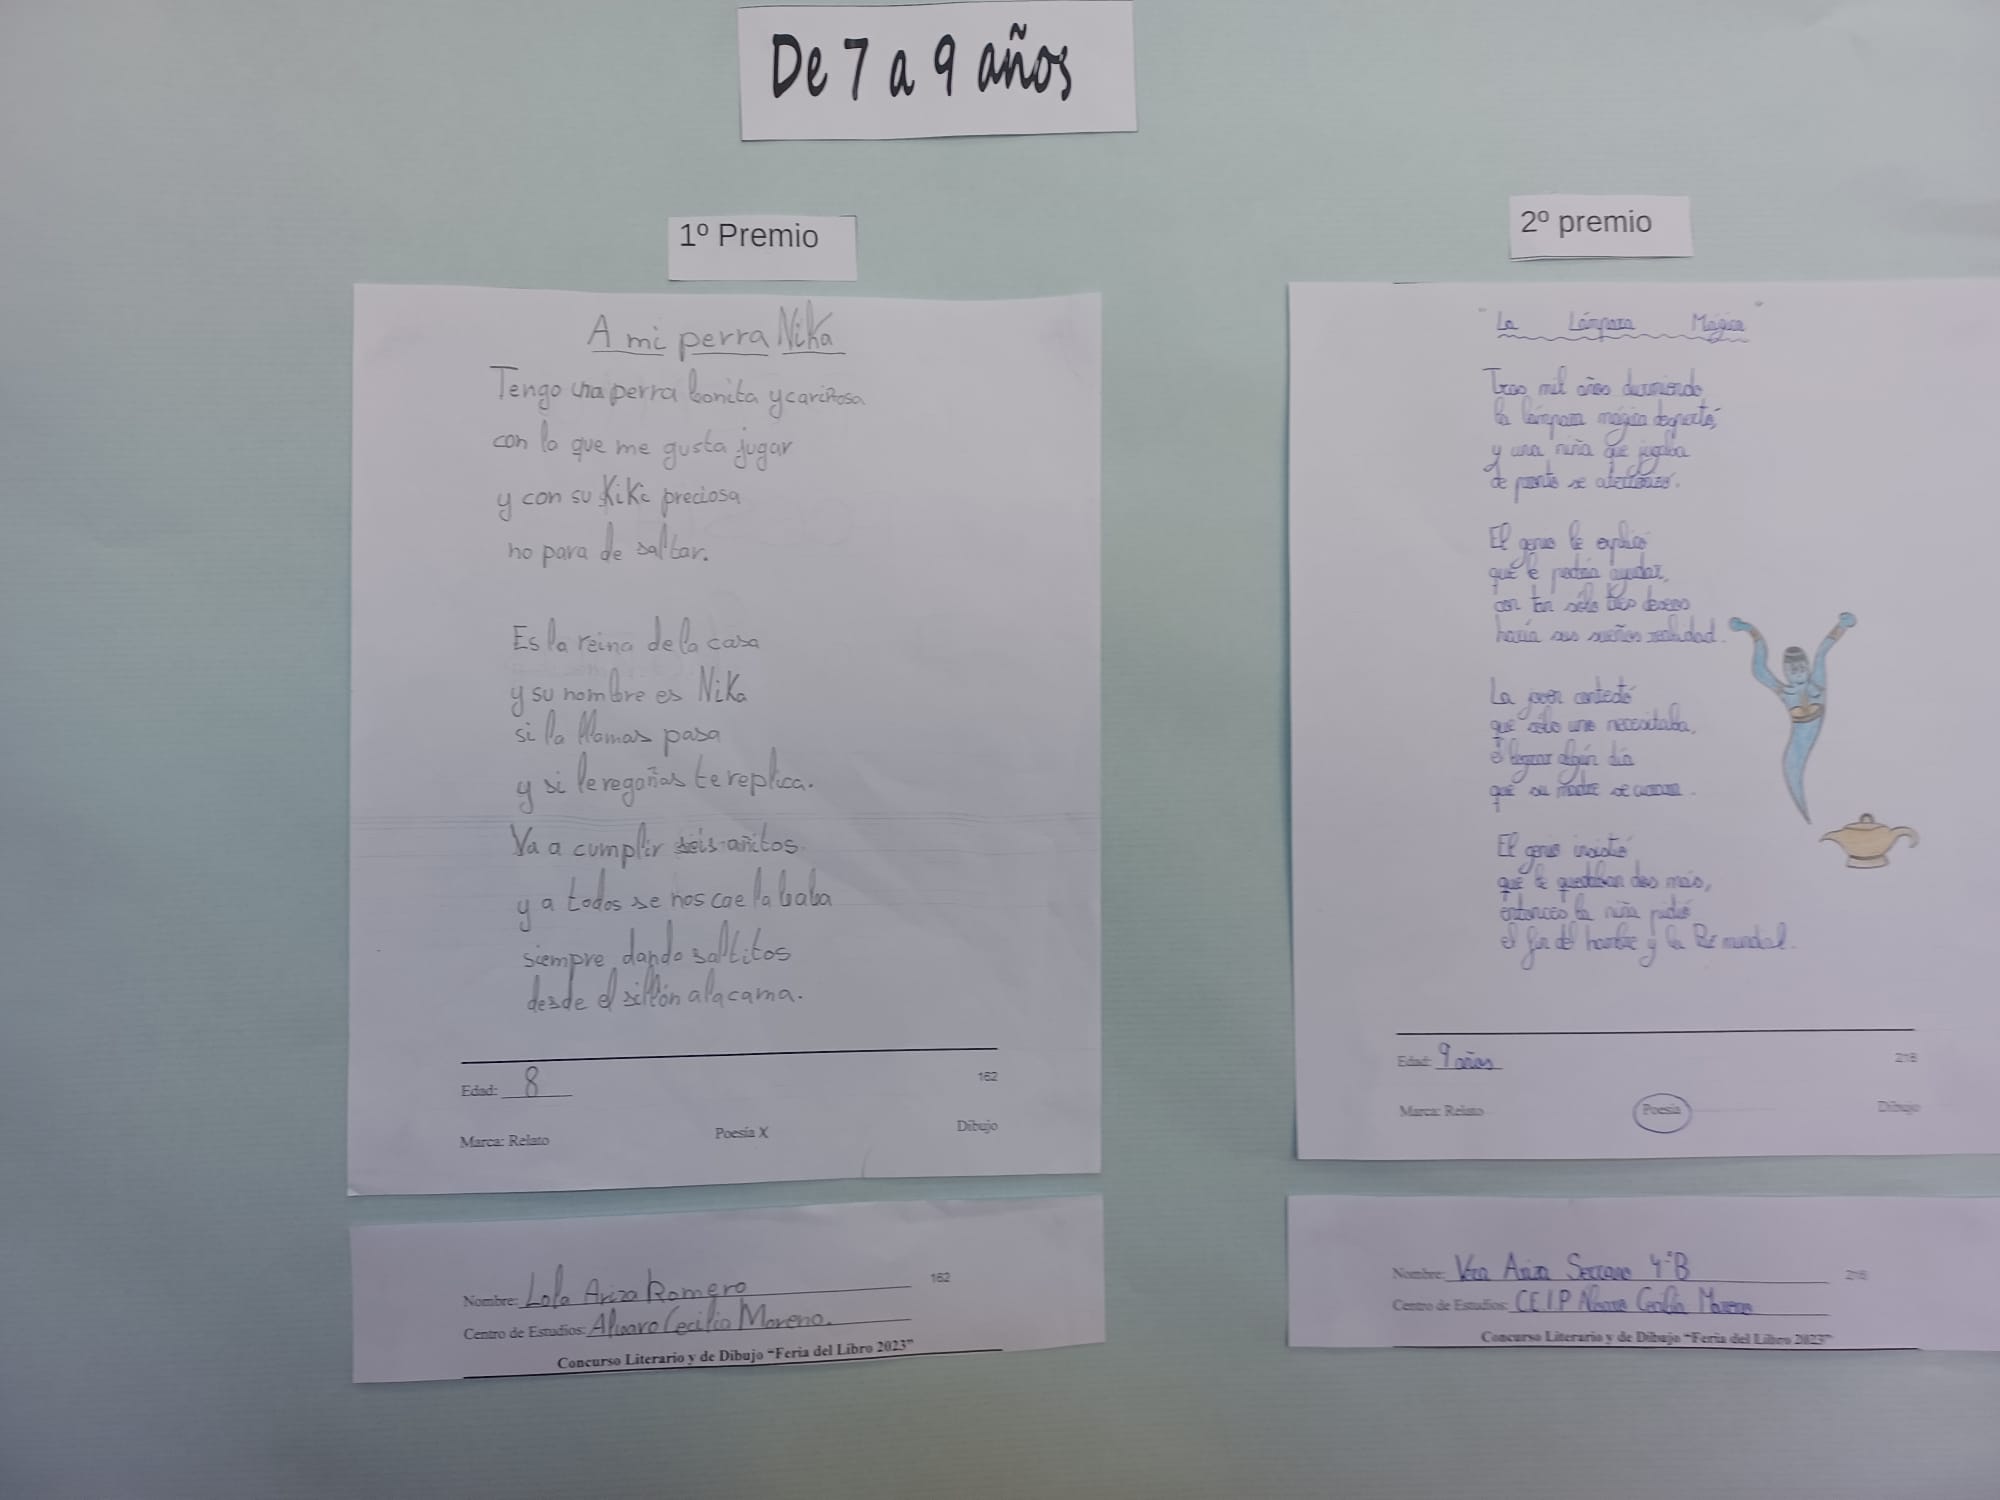 De 7 a 9 años
1º Premio
A mi perra Nika
Tengo una perra bonita y cariñosa
con la que me gusta jugar
y con su Kiki preciosa
no para de saltar.
Es la reina de la casa
y su nombre es Nika
si la llamas pasa
y si le regañas te replica.
Va a cumplir seis añitos
y a todos se nos cae la baba
siempre dando saltitos
desde el sillón a la cama.
Edad: 8
162
Marca: Relato
Poesía X
Dibujo
Nombre: Lola Ariza Romero
162
Centro de Estudios: Alvaro Cecilio Moreno.
Concurso Literario y de Dibujo "Feria del Libro 2023"
2º premio
"La Lámpara Mágica"
Tres mil años durmiendo
la lámpara mágica despertó,
y una niña que jugaba
de pronto se aterrorizó.
El genio le explicó
qué le podría ayudar,
con tan sólo tres deseos
haría sus sueños realidad.
La joven contestó
qué sólo uno necesitaba,
el lograr algún día
qué su madre se curara.
El genio insistió
qué le quedaban dos más,
entonces la niña pidió
el fin del hambre y la Paz mundial.
Edad: 9 años
218
Marca: Relato
Poesía
Dibujo
Nombre: Vera Ariza Serrano 4ºB
218
Centro de Estudios: C.E.I.P Alvaro Cecilio Moreno
Concurso Literario y de Dibujo "Feria del Libro 2023"